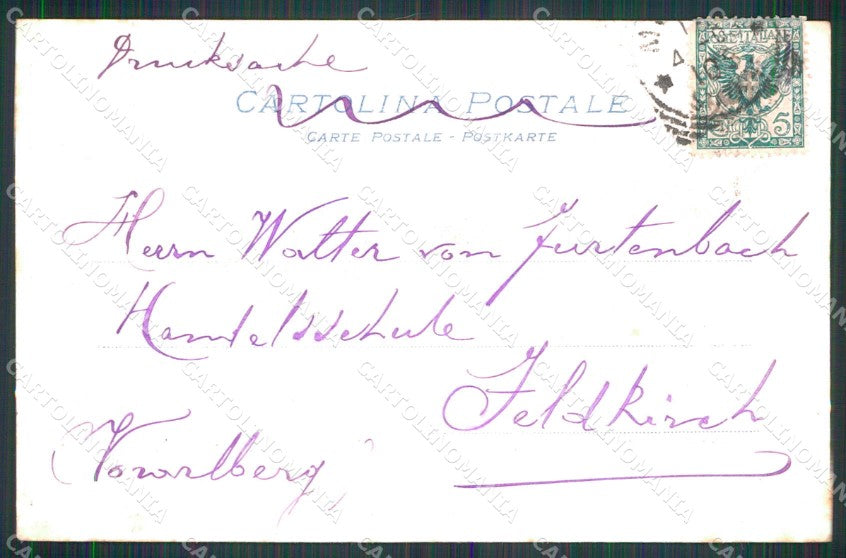 Drucksache
CARTOLINA POSTALE
CARTE POSTALE - POSTKARTE
Herrn Walter von Furtenbach
Handelsschule
Feldkirch
Vorarlberg
5
CARTOLINOMANIA